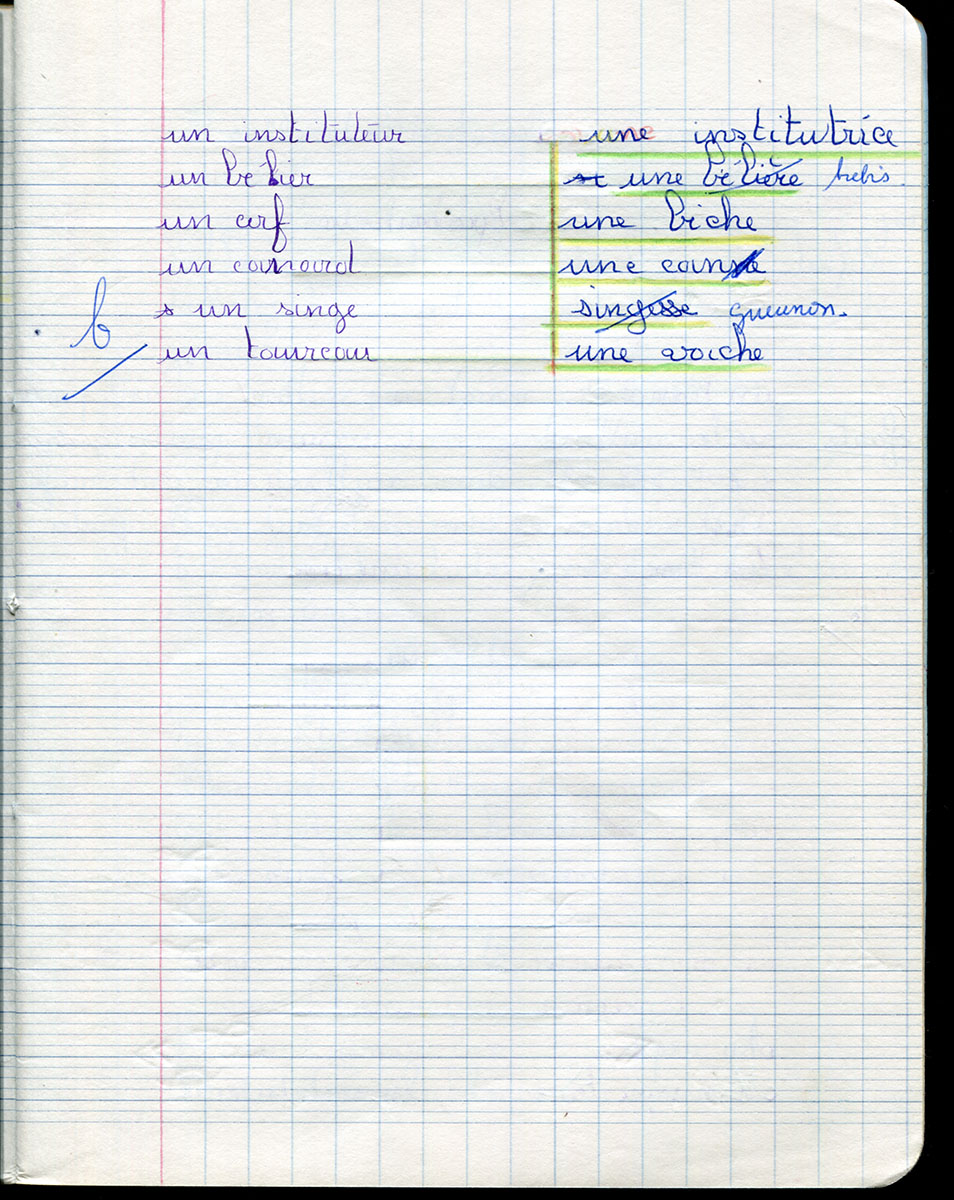 un instituteur une institutrice
un bélier une bélière brebis.
un cerf une biche
un canard une cane
un singe singesse guenon.
un taureau une vache
b